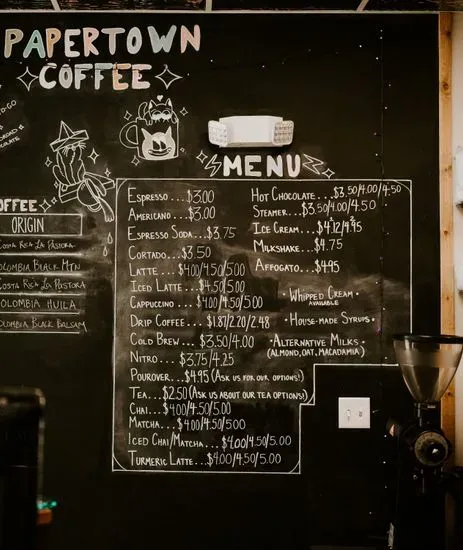 PAPERTOWN
COFFEE
MENU
OFFEE
ORIGIN
COSTA RICA LA PASTORA
OLOMBIA BLACK MTN
COSTA RICA LA PASTORA
OLOMBIA HUILA
OLOMBIA BLACK BALSAM
ESPRESSO...$3.00
AMERICANO...$3.00
ESPRESSO SODA...$3.75
CORTADO...$3.50
LATTE...$4.00/4.50/5.00
ICED LATTE...$4.50/5.00
CAPPUCCINO...$4.00/4.50/5.00
DRIP COFFEE...$1.87/2.20/2.48
COLD BREW...$3.50/4.00
NITRO...$3.75/4.25
POUROVER...$4.95 (ASK US FOR OUR OPTIONS!)
TEA...$2.50 (ASK US ABOUT OUR TEA OPTIONS!)
CHAI...$4.00/4.50/5.00
MATCHA...$4.00/4.50/5.00
ICED CHAI/MATCHA...$4.00/4.50/5.00
TURMERIC LATTE...$4.00/4.50/5.00
HOT CHOCOLATE...$3.50/4.00/4.50
STEAMER...$3.50/4.00/4.50
ICE CREAM...$4.12/4.95
MILKSHAKE...$4.75
AFFOGATO...$4.95
• WHIPPED CREAM •
AVAILABLE
• HOUSE-MADE SYRUPS •
• ALTERNATIVE MILKS •
(ALMOND, OAT, MACADAMIA)